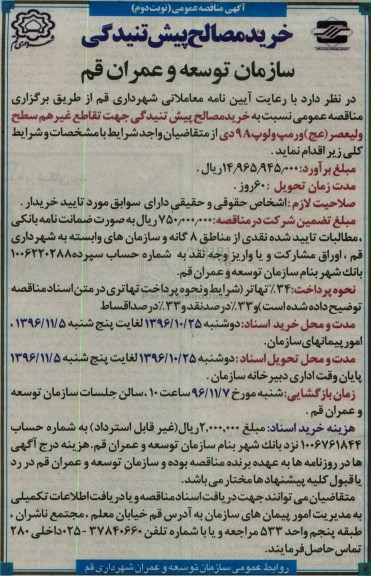 آگهی مناقصه عمومی (نوبت دوم)
خرید مصالح پیش تنیدگی
سازمان توسعه و عمران قم
در نظر دارد با رعایت آیین نامه معاملاتی شهرداری قم از طریق برگزاری
مناقصه عمومی نسبت به خرید مصالح پیش تنیدگی جهت تقاطع غیر هم سطح
ولیعصر (عج) و رمپ و لوپ ۹۸ دی از متقاضیان واجد شرایط با مشخصات و شرایط
کلی زیر اقدام نماید.
مبلغ برآورد: ۱۴،۹۶۵،۹۴۵،۰۰۰ ریال.
مدت زمان تحویل: ۶۰ روز.
صلاحیت لازم: اشخاص حقوقی و حقیقی دارای سوابق مورد تایید خریدار.
مبلغ تضمین شرکت در مناقصه: ۷۵۰،۰۰۰،۰۰۰ ریال به صورت ضمانت نامه بانکی
، مطالبات تایید شده نقدی از مناطق ۸ گانه و سازمان های وابسته به شهرداری
قم ، اوراق مشارکت و یا واریز وجه نقد به شماره حساب سپرده ۱۰۰۶۲۲۰۲۸۸
بانک شهر بنام سازمان توسعه و عمران قم.
نحوه پرداخت: ۳۴٪ تهاتر (شرایط و نحوه پرداخت تهاتری در متن اسناد مناقصه
توضیح داده شده است) و ۳۳٪ درصد نقد و ۳۳٪ درصد اقساط
مدت و محل خرید اسناد: دوشنبه ۱۳۹۶/۱۰/۲۵ لغایت پنج شنبه ۱۳۹۶/۱۱/۵
، امور پیمانهای سازمان.
مدت و محل تحویل اسناد: دوشنبه ۱۳۹۶/۱۰/۲۵ لغایت پنج شنبه ۱۳۹۶/۱۱/۵
پایان وقت اداری دبیرخانه سازمان .
زمان بازگشایی: شنبه مورخ ۹۶/۱۱/۷ ساعت ۱۰ ، سالن جلسات سازمان توسعه
و عمران قم .
هزینه خرید اسناد: مبلغ ۲،۰۰۰،۰۰۰ ریال (غیر قابل استرداد) به شماره حساب
۱۰۰۶۷۶۱۸۴۴ نزد بانک شهر بنام سازمان توسعه و عمران قم. هزینه درج آگهی
ها در روزنامه ها به عهده برنده مناقصه بوده و سازمان توسعه و عمران قم در رد
یا قبول کلیه پیشنهادها مختار می باشد.
متقاضیان می توانند جهت دریافت اسناد مناقصه و یا دریافت اطلاعات تکمیلی
به مدیریت امور پیمان های سازمان به آدرس قم خیابان معلم ، مجتمع ناشران ،
طبقه پنجم واحد ۵۳۳ مراجعه و یا با شماره تلفن ۳۷۸۴۰۶۶۰-۰۲۵ داخلی ۲۸۰
تماس حاصل فرمایند.
روابط عمومی سازمان توسعه و عمران شهرداری قم